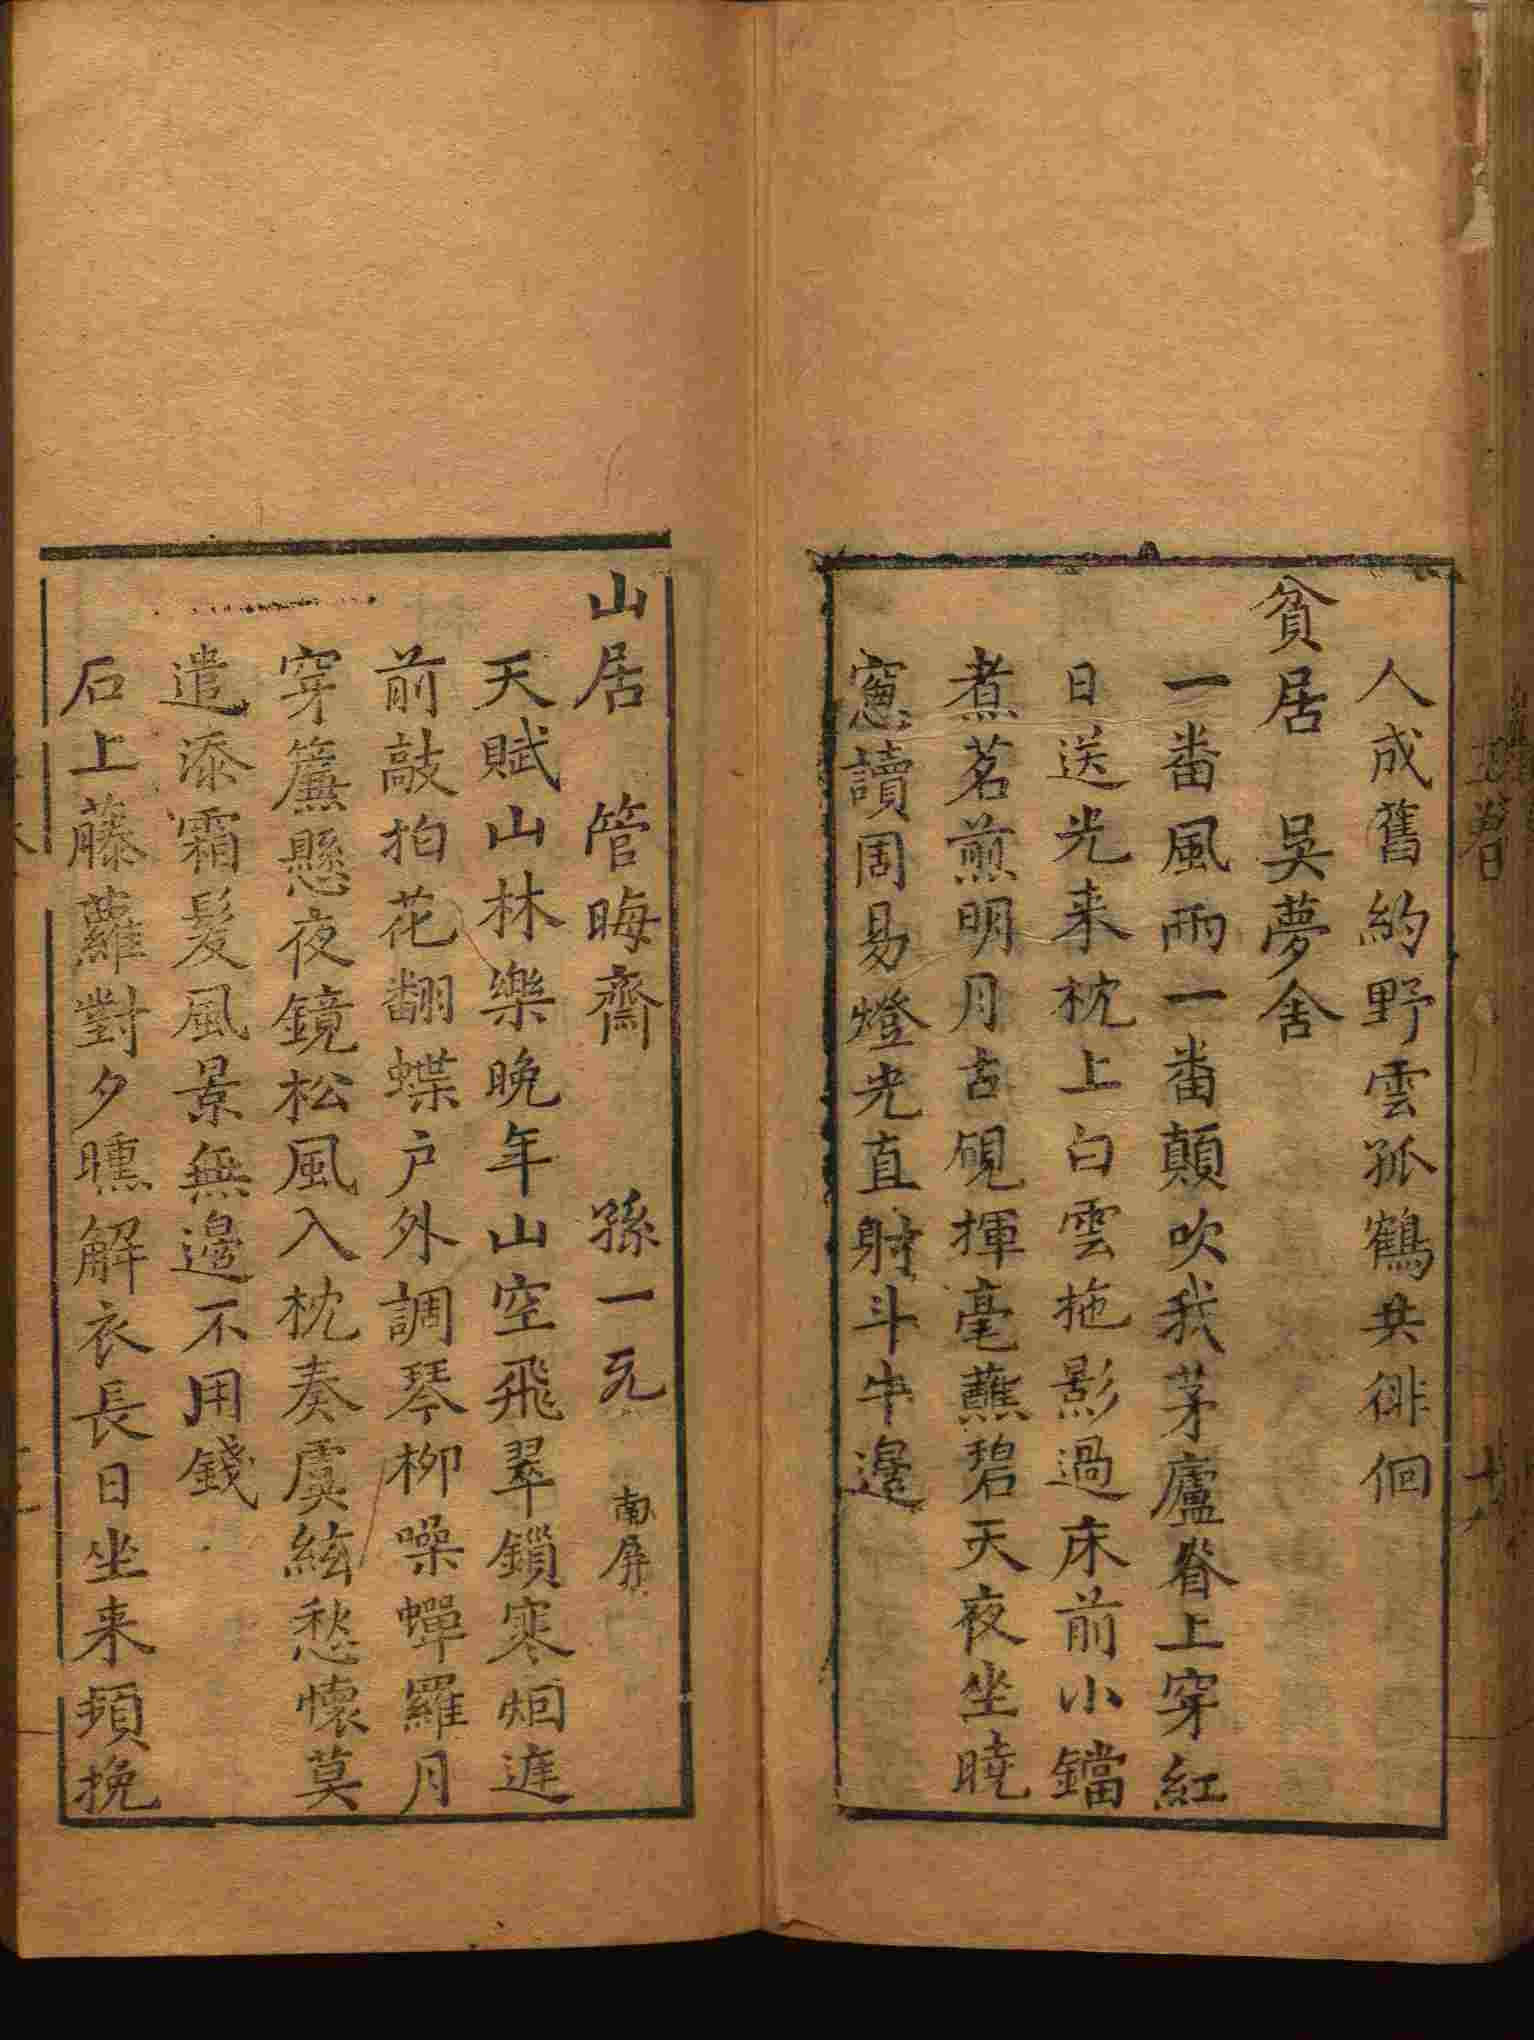 人成舊約野雲孤鶴共徘徊
貧居　吳夢舍
一番風雨一番顛吹我茅廬脊上穿紅
日送光来枕上白雲拖影過床前小鐺
煮茗煎明月古硯揮毫蘸碧天夜坐曉
窻讀周易燈光直射斗牛邊
山居　管晦齋　孫一元　南屏
天賦山林樂晚年山空飛翠鎖寒烟遅
前敲拍花翻蝶戶外調琴柳噪蟬羅月
穿簾懸夜鏡松風入枕奏虞絃愁懷莫
遣添霜髮風景無邊不用錢
石上藤蘿對夕曛解衣長日坐来頻挽